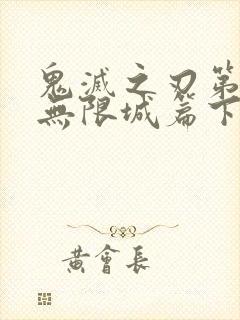 鬼滅之刃第
無限城篇下
黃會長